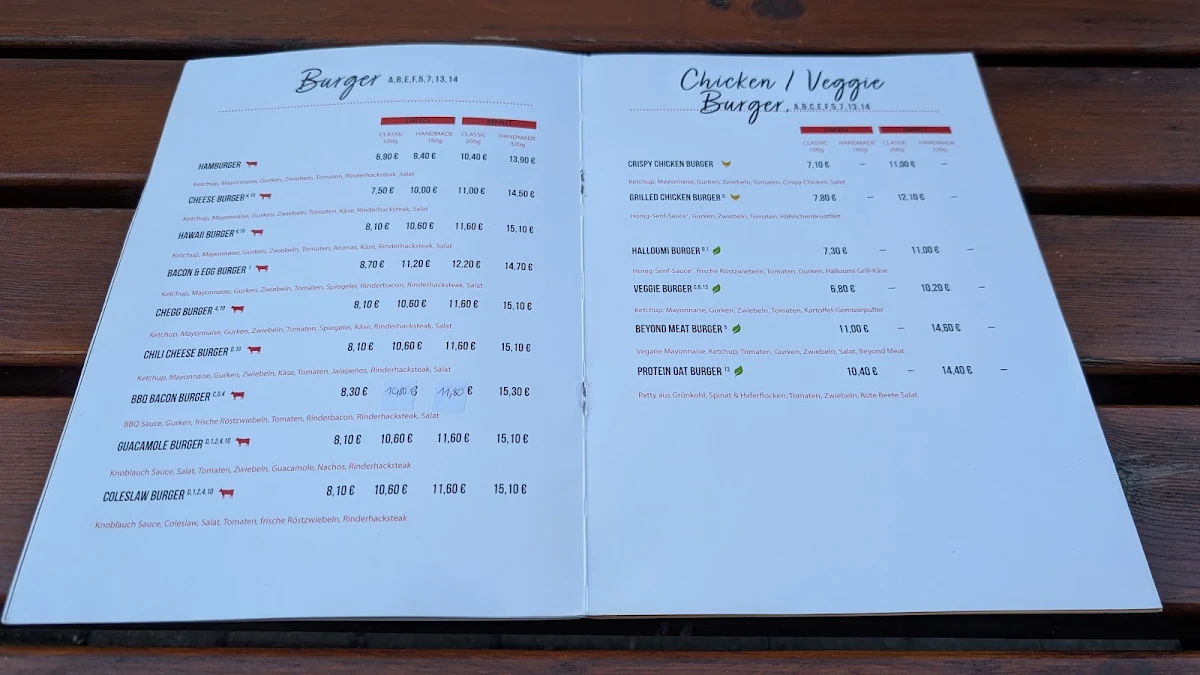 Burger A,B,E,F,5,7,13,14
EINFACH DOPPELT
CLASSIC 100g HANDMADE 160g CLASSIC 200g HANDMADE 320g
HAMBURGER 6,90 € 9,40 € 10,40 € 13,90 €
Ketchup, Mayonnaise, Gurken, Zwiebeln, Tomaten, Rinderhacksteak, Salat
CHEESE BURGER 4,10 7,50 € 10,00 € 11,00 € 14,50 €
Ketchup, Mayonnaise, Gurken, Zwiebeln, Tomaten, Käse, Rinderhacksteak, Salat
HAWAII BURGER 4,10 8,10 € 10,60 € 11,60 € 15,10 €
Ketchup, Mayonnaise, Gurken, Zwiebeln, Tomaten, Ananas, Käse, Rinderhacksteak, Salat
BACON & EGG BURGER 8,70 € 11,20 € 12,20 € 14,70 €
Ketchup, Mayonnaise, Gurken, Zwiebeln, Tomaten, Spiegelei, Rinderbacon, Rinderhacksteak, Salat
CHEGG BURGER 4,10 8,10 € 10,60 € 11,60 € 15,10 €
Ketchup, Mayonnaise, Gurken, Zwiebeln, Tomaten, Spiegelei, Käse, Rinderhacksteak, Salat
CHILI CHEESE BURGER 8,10 € 10,60 € 11,60 € 15,10 €
Ketchup, Mayonnaise, Gurken, Zwiebeln, Käse, Tomaten, Jalapeños, Rinderhacksteak, Salat
BBQ BACON BURGER 8,30 € 10,80 € 11,80 € 15,30 €
BBQ Sauce, Gurken, frische Röstzwiebeln, Tomaten, Rinderbacon, Rinderhacksteak, Salat
GUACAMOLE BURGER D,1,2,4,10 8,10 € 10,60 € 11,60 € 15,10 €
Knoblauch Sauce, Salat, Tomaten, Zwiebeln, Guacamole, Nachos, Rinderhacksteak
COLESLAW BURGER D,1,2,4,10 8,10 € 10,60 € 11,60 € 15,10 €
Knoblauch Sauce, Coleslaw, Salat, Tomaten, frische Röstzwiebeln, Rinderhacksteak
Chicken / Veggie
Burger, A,B,C,E,F,5,7,13,14
EINFACH DOPPELT
CLASSIC 100g HANDMADE 160g CLASSIC 200g HANDMADE 320g
CRISPY CHICKEN BURGER 7,10 € – 11,00 € –
Ketchup, Mayonnaise, Gurken, Zwiebeln, Tomaten, Crispy Chicken, Salat
GRILLED CHICKEN BURGER 7,80 € – 12,10 € –
Honig-Senf-Sauce, Gurken, Zwiebeln, Tomaten, Hähnchenbrustfilet
HALLOUMI BURGER 7,30 € – 11,00 € –
Honig-Senf-Sauce, frische Röstzwiebeln, Tomaten, Gurken, Halloumi Grill-Käse
VEGGIE BURGER 6,80 € – 10,20 € –
Ketchup, Mayonnaise, Gurken, Zwiebeln, Tomaten, Kartoffel-Gemüsepuffer
BEYOND MEAT BURGER 5 11,00 € – 14,60 € –
Vegane Mayonnaise, Ketchup, Tomaten, Gurken, Zwiebeln, Salat, Beyond Meat
PROTEIN OAT BURGER 13 10,40 € – 14,40 € –
Patty aus Grünkohl, Spinat & Haferflocken, Tomaten, Zwiebeln, Rote Beete Salat